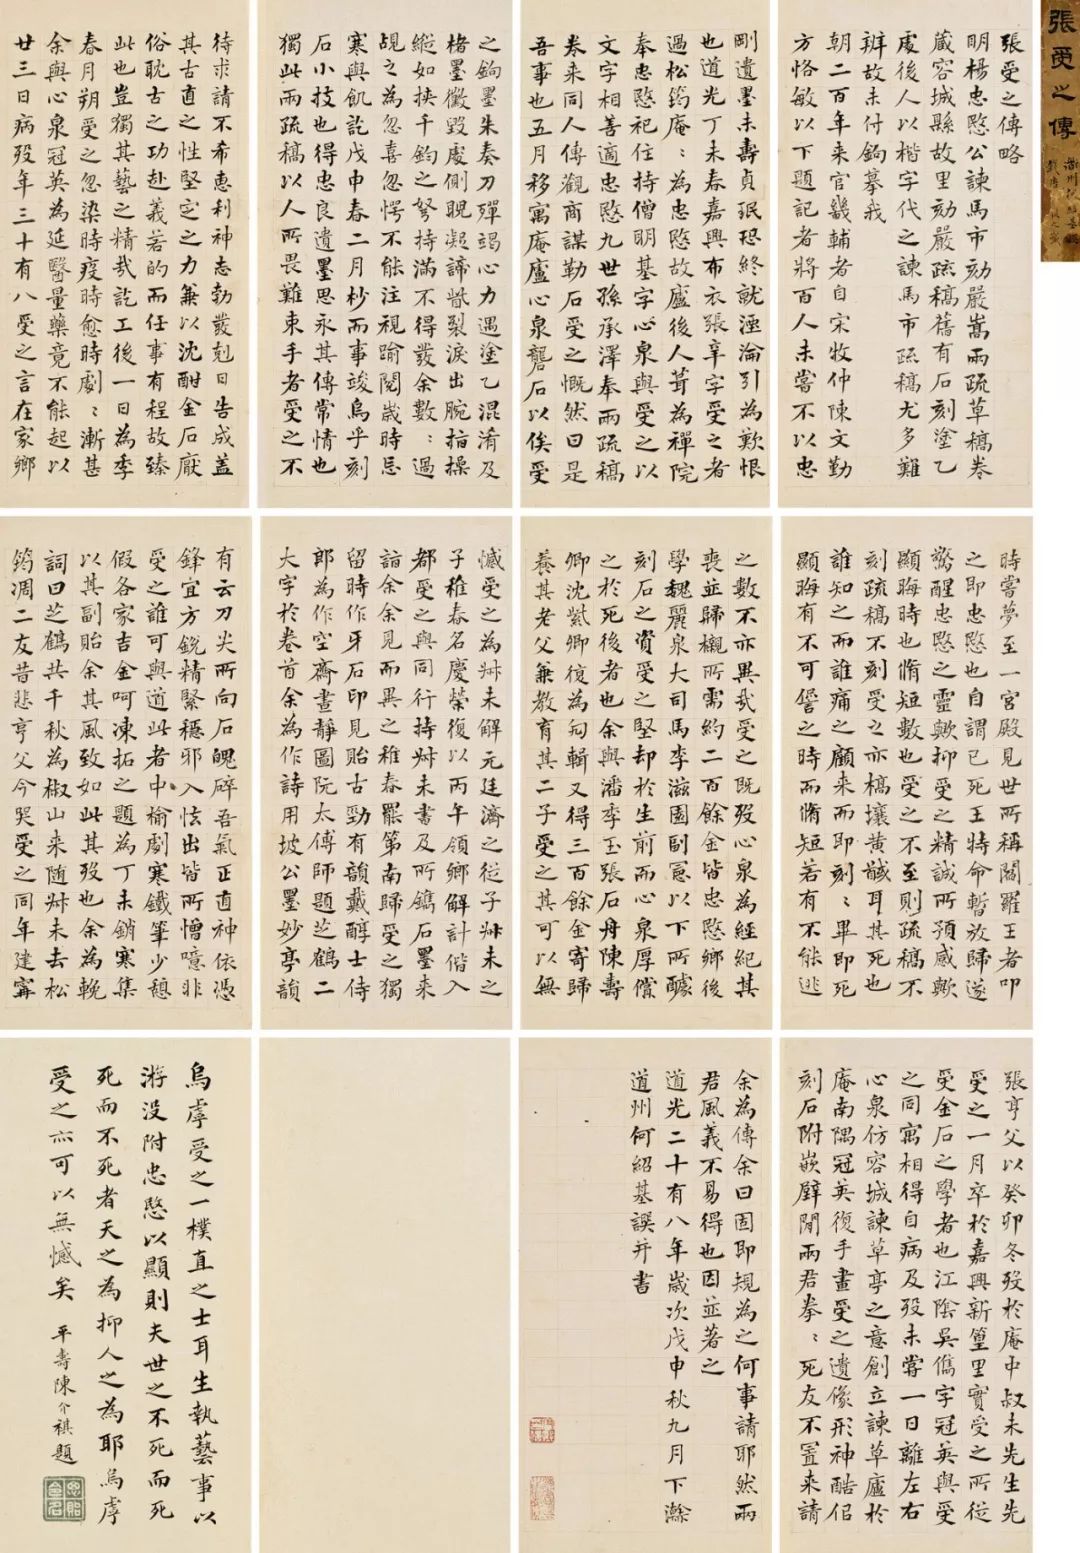 張受之傳
張受之傳略
明楊忠愍公諫馬市劾嚴嵩兩疏草稿卷
藏容城縣故里劾嚴疏稿舊有石刻塗乙
處後人以楷字代之諫馬市疏稿尤多難
辨故未付鉤摹我
朝二百年来官畿輔者自宋牧仲陳文勤
方恪敏以下題記者將百人未嘗不以忠
剛遺墨未壽貞珉恐終就湮淪引為歎恨
也道光丁未春嘉興布衣張辛字受之者
過松筠庵:為忠愍故廬後人葺為禪院
奉忠愍祀住持僧明基字心泉與受之以
文字相善適忠愍九世孫承澤奉兩疏稿
卷来同人傳觀商謀勒石受之慨然曰是
吾事也五月移寓庵廬心泉礱石以俟受
之鉤墨朱奏刀殫竭心力遇塗乙混淆及
楮墨黴毀處側睨凝諦眥裂淚出腕指操
縱如挾千鈞之弩持滿不得發余數:過
覘之為忽喜忽愕不能注視踰閱歲時忌
寒與飢訖戊申春二月杪而事竣烏乎刻
石小技也得忠良遺墨思永其傳常情也
獨此兩疏稿以人所畏難束手者受之不
待求請不希惠利神志勃發剋日告成蓋
其古直之性堅定之力兼以沈酣金石厭
俗耽古之功赴義若的而任事有程故臻
此也豈獨其藝之精哉訖工後一日為季
春月朔受之忽染時疫時愈時劇:漸甚
余與心泉冠英為延醫量藥竟不能起以
廿三日病歿年三十有八受之言在家鄉
時嘗夢至一宮殿見世所稱閻羅王者叩
之即忠愍也自謂已死王特命暫放歸遂
驚醒忠愍之靈歟抑受之精誠所預感歟
顯晦時也脩短數也受之不至則疏稿不
刻疏稿不刻受之亦槁壤黃馘耳其死也
誰知之而誰痛之顧来而即刻:畢即死
顯晦有不可訾之時而脩短若有不能逃
之數不亦異哉受之既歿心泉為經紀其
喪並歸櫬所需約二百餘金皆忠愍鄉後
學魏麗泉大司馬李滋園副憲以下所醵
刻石之資受之堅却於生前而心泉厚償
之於死後者也余與潘季玉張石舟陳壽
卿沈紫卿復為匄輯又得三百餘金寄歸
養其老父兼教育其二子受之其可以無
憾受之為叔未解元廷濟之從子叔未之
子稚春名慶榮復以丙午領鄉解計偕入
都受之與同行持叔未書及所鐫石墨来
詣余余見而異之稚春罷第南歸受之獨
留時作牙石印見貽古勁有韻戴醇士侍
郎為作空齋畫靜圖阮太傅師題芝鶴二
大字於卷首余為作詩用坡公墨妙亭韻
有云刀尖所向石魄碎吾氣正直神依憑
鋒宜方銳精緊穩邪入怯出皆所憎噫非
受之誰可與道此者中榆劇寒鐵筆少憩
假各家吉金呵凍拓之題為丁未銷寒集
以其副貽余其風致如此其歿也余為輓
詞曰芝鶴共千秋為椒山来随叔未去松
筠凋二友昔悲亨父今哭受之同年建寧
張亨父以癸卯冬歿於庵中叔未先生先
受之一月卒於嘉興新篁里實受之所從
受金石之學者也江陰吳儁字冠英與受
之同寓相得自病及歿未嘗一日離左右
心泉仿容城諫草亭之意創立諫草廬於
庵南隅冠英復手畫受之遺像形神酷佀
刻石附嵌壁間兩君拳:死友不置来請
余為傳余曰固即規為之何事請耶然兩
君風義不易得也因並著之
道光二十有八年歲次戊申秋九月下澣
道州何紹基譔并書
烏虖受之一樸直之士耳生執藝事以
游没附忠愍以顯則夫世之不死而死
死而不死者天之為抑人之為耶烏虖
受之亦可以無憾矣 平壽陳介祺題